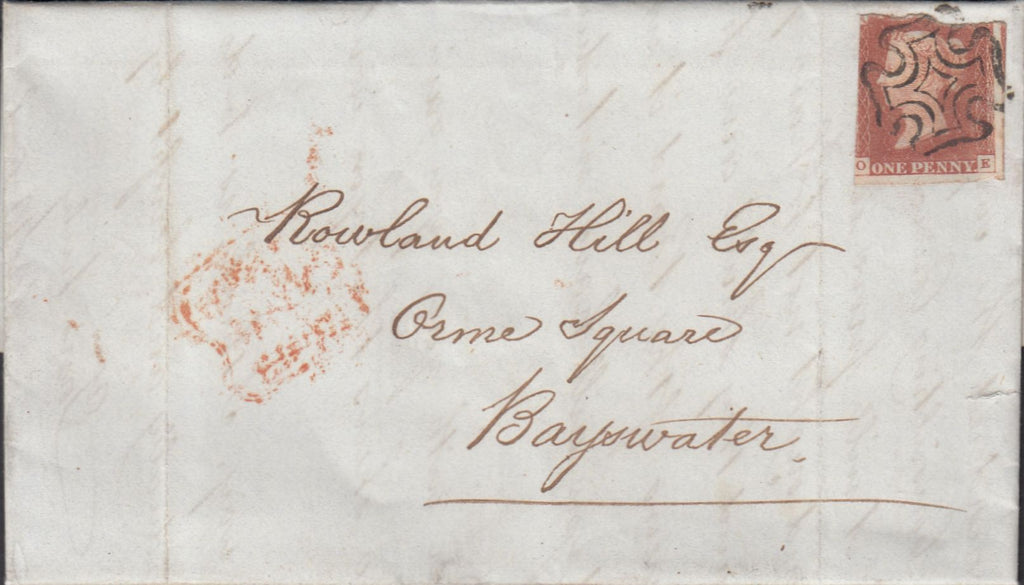 O ONE PENNY E
Rowland Hill Esq
Orme Square
Bayswater.